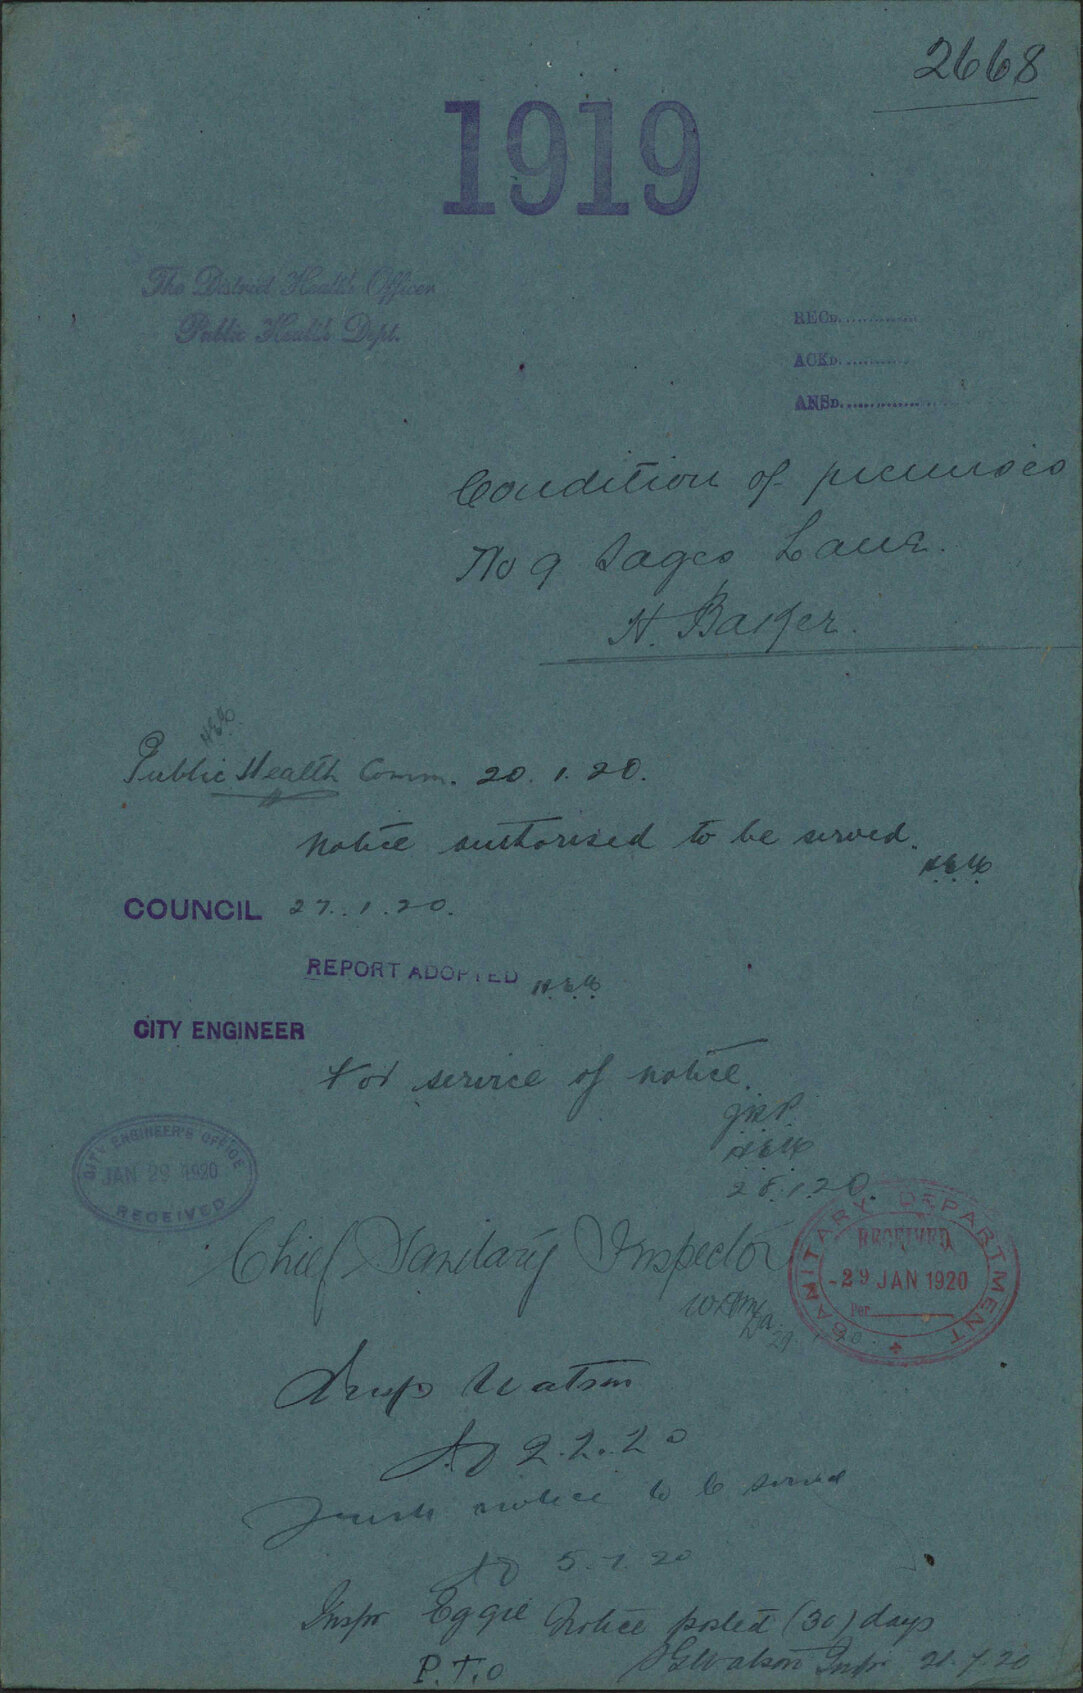 2668
1919
The District Health Officer
Public Health Dept.
RECD.
ACKD.
ANSD.
Condition of premises
No 9 Sages Lane.
H. Barker.
H.E.W.
Public Health Comm. 20.1.20.
Notice authorised to be served.
H.E.W.
COUNCIL 27.1.20.
REPORT ADOPTED H.E.W.
CITY ENGINEER
For service of notice.
JRP.
H.E.W.
28.1.20.
CITY ENGINEER'S OFFICE
JAN 29 1920
RECEIVED
Chief Sanitary Inspector
SANITARY DEPARTMENT
RECEIVED
-29 JAN 1920
Per
29.1.20.
Insp Watson
2.2.20
notice to be served
5.7.20
Inspr Eggie Notice posted (30) days
Watson Inspr 21.7.20
P.T.O